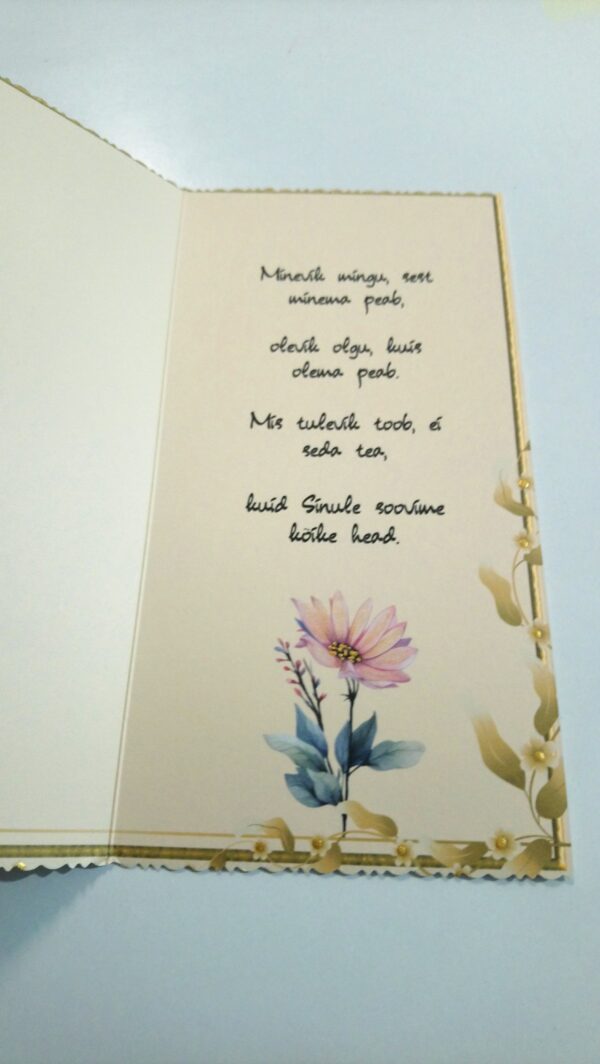 Minevik mingu, sest
minema peab,
olevik olgu, kuis
olema peab.
Mis tulevik toob, ei
seda tea,
kuid Sinule soovime
kõike head.